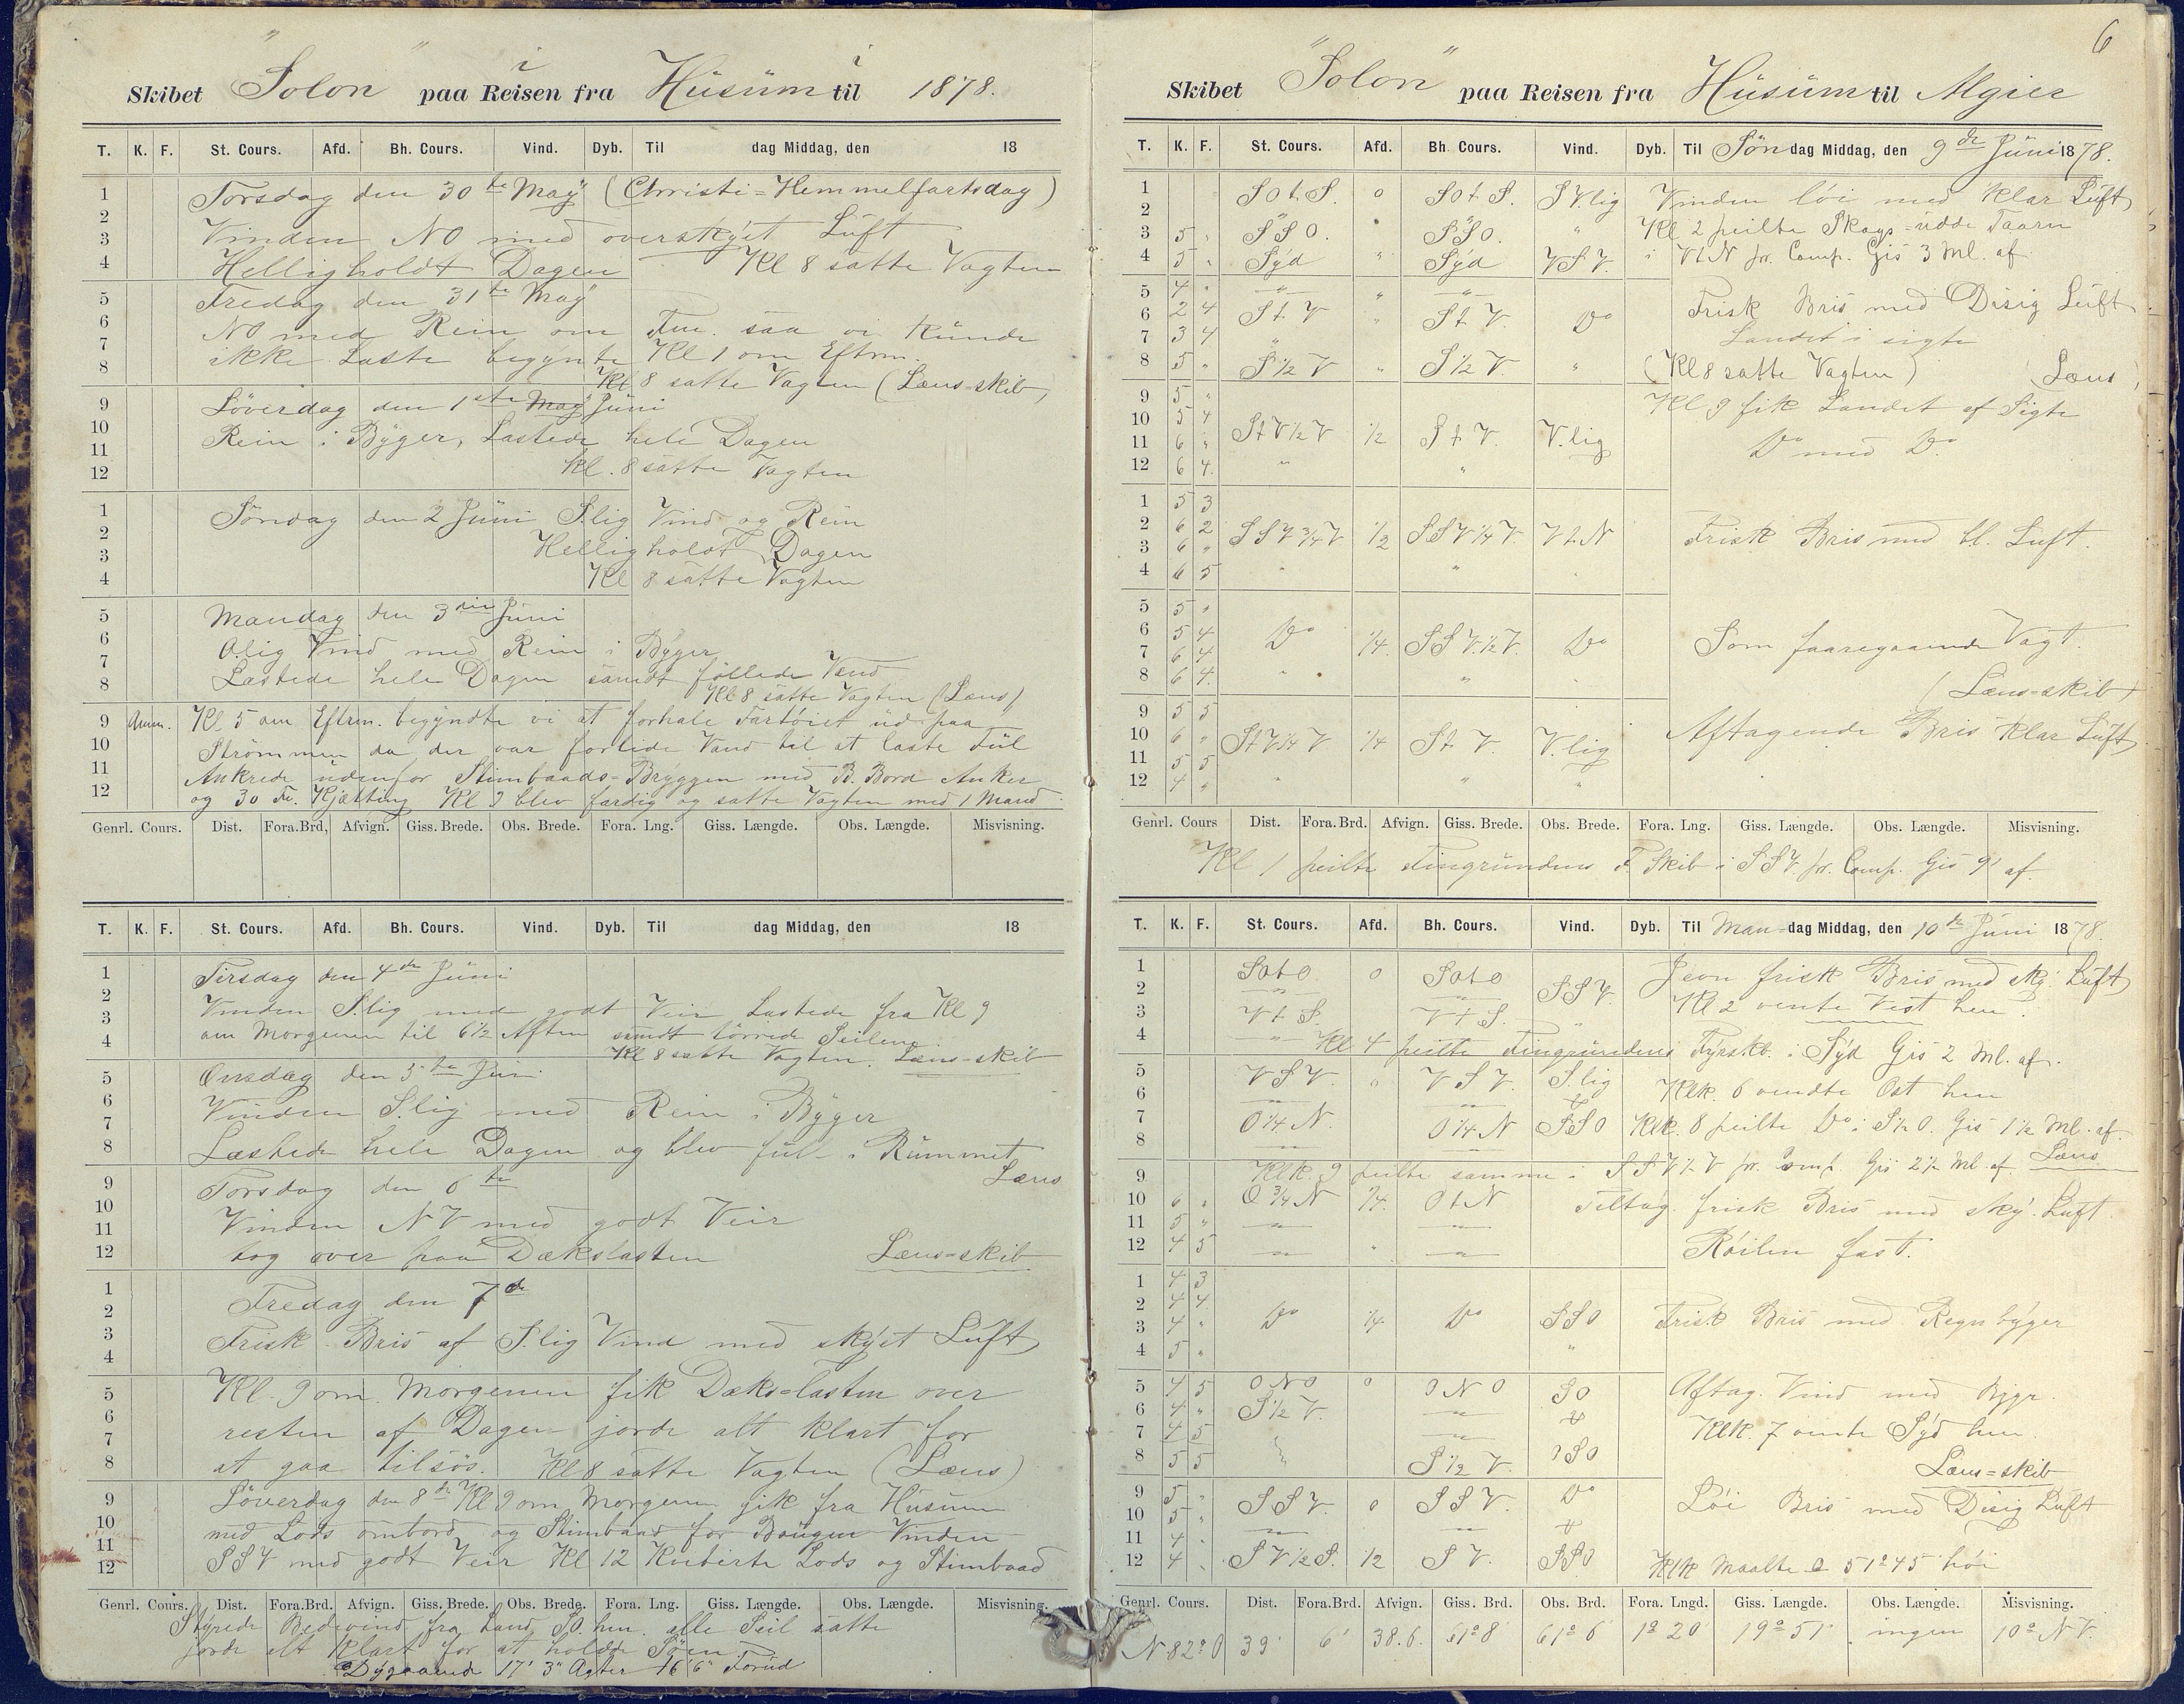 Skibet "Solon" paa Reisen fra i Hüsüm i til 1878.
T. K. F. St. Cours. Afd. Bh. Cours. Vind. Dyb. Til dag Middag, den 18
1 2 3 4
Torsdag den 30te May (Christi=Hemmelfartsdag)
Vinden NO med overskyet Lüft
Helligholdt Dagen Kl 8 satte Vagten
5 6 7 8
Fredag den 31te May
NO med Rein om Fm. saa vi künde
ikke Laste begynte Kl 1 om Eftrm.
Kl 8 satte Vagten (Læns=skib)
9 10 11 12
Löverdag den 1ste May Jüni
Rein i Byger, Lastede hele Dagen
Kl. 8 satte Vagten
1 2 3 4
Söndag den 2 Jüni S.lig Vind og Rein
Helligholdt Dagen
Kl 8 satte Vagten
5 6 7 8
Mandag den 3die Jüni
O.lig Vind med Rein i Byger
Lastede hele Dagen samdt föllede Vand
Kl 8 satte Vagten (Læns)
9 10 11 12
Anm. Kl 5 om Eftrm. begyndte vi at forhale Fartöiet üd paa
Strömmen da der var forlide Vand til at laste Fül
Ankrede üdenfor Stimbaads=Bryggen med B. Bord Anker
og 30 Fv. Kjætting Kl 9 blev færdig og satte Vagten med 1 Mand
Genrl. Cours. Dist. Fora.Brd, Afvign. Giss. Brede. Obs. Brede. Fora. Lng. Giss. Længde. Obs. Længde. Misvisning.
T. K. F. St. Cours. Afd. Bh. Cours. Vind. Dyb. Til dag Middag, den 18
1 2 3 4
Tirsdag den 4de Jüni
Vinden S.lig med godt Veir Lastede fra Kl 9
om Morgenen til 6 1/2 Aften samdt törrede Seilene
Kl 8 satte Vagten. Læns=skib
5 6 7 8
Onsdag den 5te Juni
Vinden S.lig med Rein i Byger
Lastede hele Dagen og blev full i Rümmet
Læns
9 10 11 12
Torsdag den 6te
Vinden NV med godt Veir
tog over paa Dækslasten Læns=skib
1 2 3 4
Fredag den 7de
Frisk Bris af S.lig Vind med skyet Lüft
5 6 7 8
Kl. 9 om Morgenen fik Dæks=lasten over
resten af Dagen jorde alt klart for
at gaa tilsös. Kl 8 satte Vagten (Læns)
9 10 11 12
Löverdag den 8de Kl 9 om Morgenen gik fra Hüsüm
med Lods ombord og Stimbaad for Baügen Vinden
SSV med godt Veir Kl 12 Kviterte Lods og Stimbaad
Genrl. Cours. Dist. Fora.Brd. Afvign. Giss. Brede. Obs. Brede. Fora. Lng. Giss. Længde. Obs. Længde. Misvisning.
Styrede Bedevind fra Land SO. hen. alle Seil satte
jorde alt klart for at holde Söen
Dygaaende 17' 3" Agter 16' 6" Forud
6
Skibet "Solon" paa Reisen fra Hüsüm til Algier
T. K. F. St. Cours. Afd. Bh. Cours. Vind. Dyb. Til Söndag Middag, den 9de Jüni 1878.
1 SOtS. 0 SOtS. SV.lig Vinden löi med klar Lüft
2
3 5 " SSO. " SSO. " Kl 2 peilte Skags=üdde Taarn
4 5 " Syd " Syd VSV. i VtN pr. Comp. Gis 3 Ml. af
5 4 " " " "
6 2 4 StV " StV. Do Frisk Bris med Disig Lüft
7 3 4 Landet i sigte
8 5 " S 1/2 V " S 1/2 V. " (Kl 8 satte Vagten) Læns
9 5 " Kl 9 fik Landet af Sigte
10 5 4
11 6 " StV 1/2 V 1/2 StV. V.lig Do med Do
12 6 4. " "
1 5 3
2 6 2 SSV 3/4 V. 1/2 SSV 1/4 V. VtN Frisk Bris med bl. Luft.
3 6 "
4 6 5 " "
5 5 "
6 5 4 Do 1/4. SSV. 1/2 V. Do Som faaregaaende Vagt.
7 6 4
8 6 4. " " (Læns=skib)
9 5 5 Aftagende Bris klar Lüft
10 6 " StV 1/4 V 1/4 StV. V.lig
11 5 5
12 4 " " " "
Genrl. Cours Dist. Fora.Brd. Afvign. Giss. Brede. Obs. Brede. Fora. Lng. Giss. Længde. Obs. Længde. Misvisning.
Kl 1 peilte Fingründens F. Skib i SSV. pr. Comp. Gis 9' af.
T. K. F. St. Cours. Afd. Bh. Cours. Vind. Dyb. Til Man=dag Middag, den 10de Juni 1878.
1 SOtO 0 SOtO Jevn frisk Bris med sky. Lüft
2 " " SSV. Kl 2 vente Vest hen.
3 VtS. VtS.
4 " Kl 4 peilte Fingründens Fyrskb. i Syd Gis 2 Ml. af.
5 VSV. 0 VSV. S.lig Klk. 6 vendte Ost hen
6 " "
7 O 1/4 N. O 1/4 N SSO Klk. 8 peilte Do i S 1/2 O. Gis 1 1/2 Ml. af.
8 " " Læns
9 Klk. 9 peilte samme i SSV 1/2 V pr. Comp. Gis 2 1/2 Ml. af.
10 6 " O 3/4 N 1/4. OtN Tiltag. frisk Bris med sky. Lüft
11 5 " " "
12 4 5 " " " Röilen fast.
1 4 3
2 4 4. Do 1/4 Do SSO Frisk Bris med Regnbyger
3 4 "
4 5 " "
5 4 5 ONO 0 ONO SO Aftag. Vind med Bygr.
6 4 " S 1/2 V. "
7 4 5 " Klk. 7 vente Syd hen.
8 5 5 S 1/2 V. OSO Læns=skib
9 5 " SSV. 0 SSV. Do Löi Bris med Disig Lüft
10 5 " " "
11 4 "
12 4 " SV 1/2 S. 1/2 SV. SSO Klk Maalte 51° 45 höi
Genrl. Cours. Dist. Fora.Brd. Afvign. Giss. Brd. Obs. Brd. Fora. Lngd. Giss. Længde. Obs. Længde. Misvisning.
N 82° O 39' 6' 38.6. 61° 8' 61° 6' 1° 20' 19° 51' ingen 10° NV.